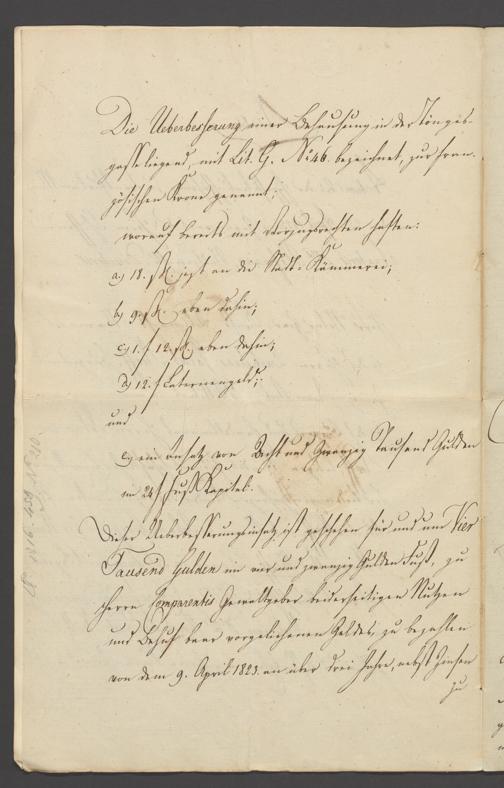 Die Ueberbesserung einer Behausung in der Tönges-
gasse liegend, mit Lit. G. No 46. bezeichnet, zur fran-
zösischen Krone genannt;
worauf bereits mit Vorzugsrechten haften:
a) 18. ßh. jezt an die Stadt-Kämmerei;
b) 9. ßh. eben dahin;
c) 1. f 12. ßh. eben dahin;
d) 12. f Laternengeld;
und
e) ein Insatz von Acht und Zwanzig Tausend Gulden
im 24 f Fuß Kapital.
Dieser Ueberbesserungsinsatz ist geschehen für und um Vier
Tausend Gulden im vier und zwanzig Gulden Fuß, zu
Herrn Comparentis Gewaltgeber beiderseitigen Nutzen
und Behuf baar vorgeliehenen Geldes, zu bezahlen
von dem 9. April 1823. an über drei Jahre, nebst Zinsen
zu